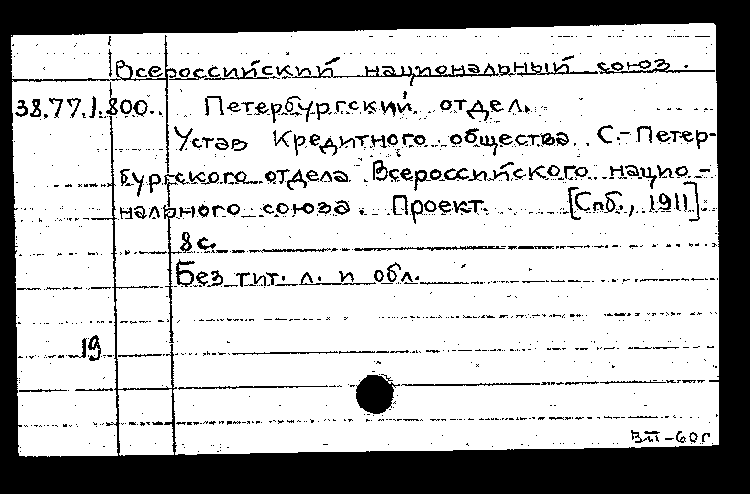 Всероссийский национальный союз.
38.77.1.800. Петербургский отдел.
Устав Кредитного общества С.-Петер-
бургского отдела Всероссийского нацио-
нального союза. Проект. [Спб., 1911].
8 с.
Без тит. л. и обл.
19
ВП-60г